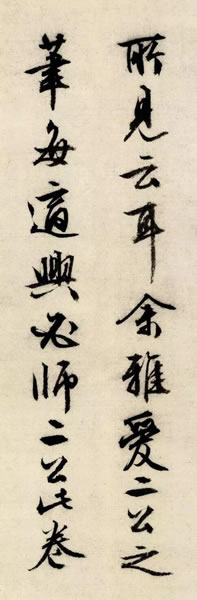 所見云耳余雅愛二公之
筆每適興必師二公此卷